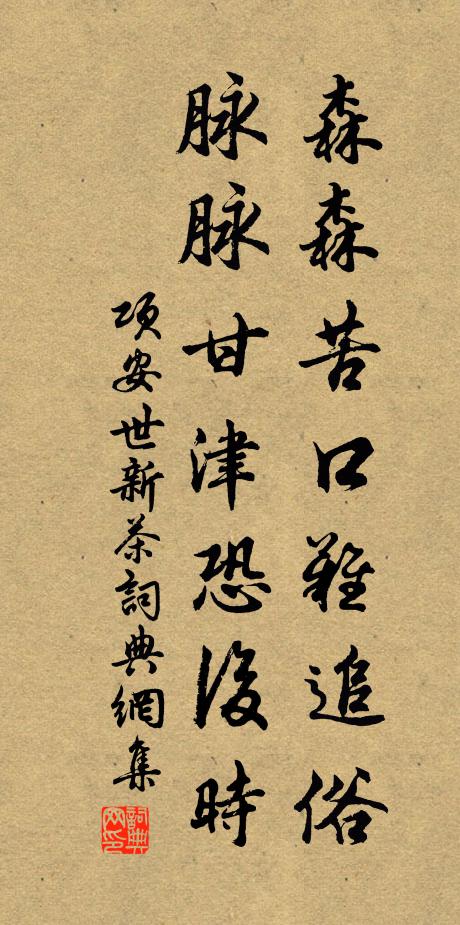 森森苦口難追俗
脉脉甘津恐後時
項安世新茶詞典網集
詞典網印